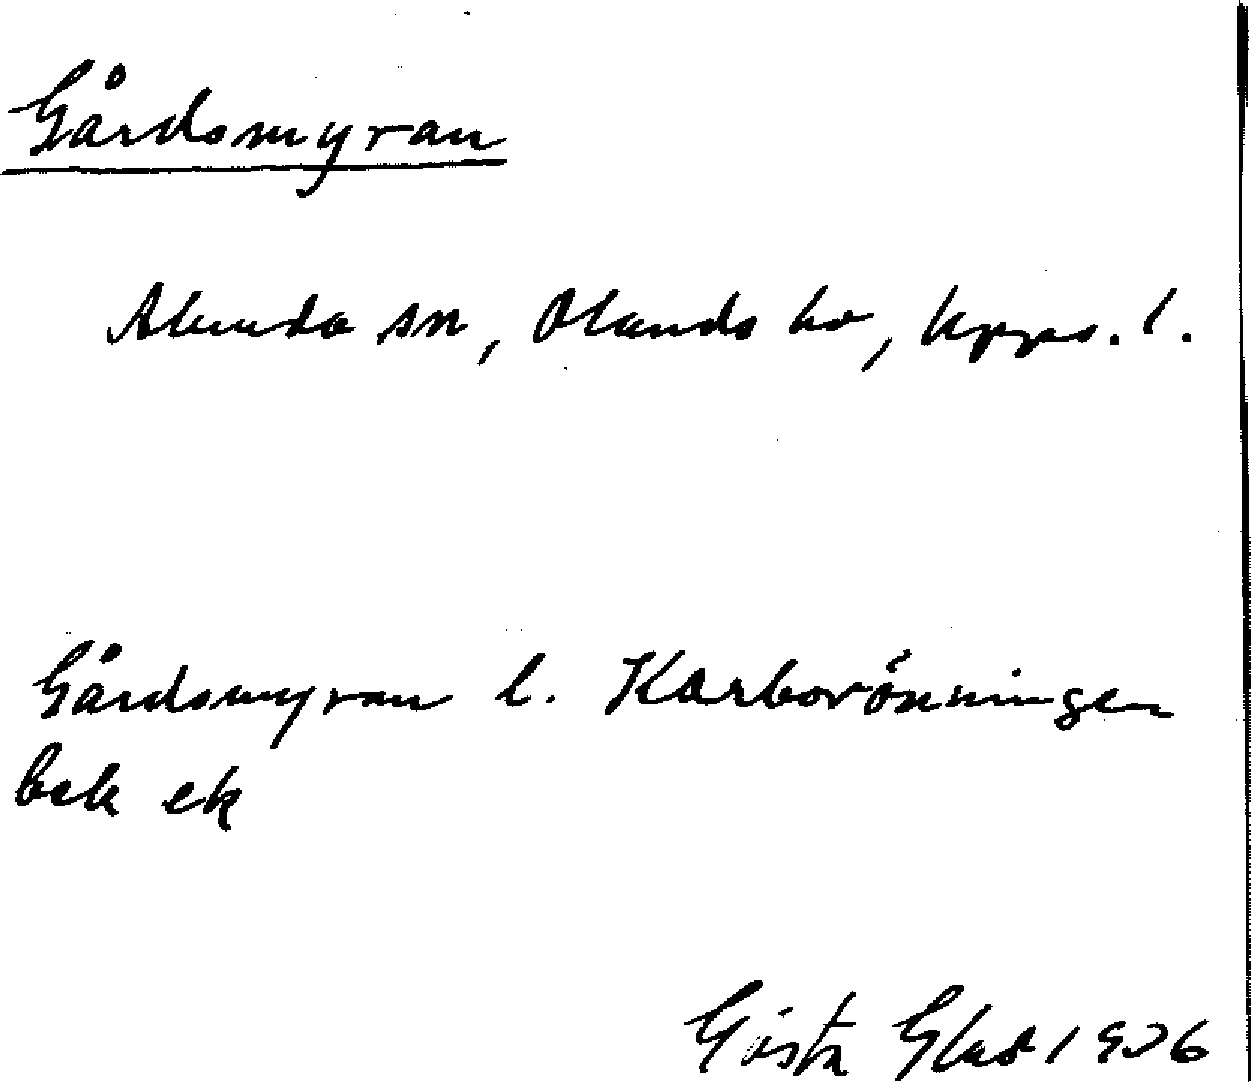 Gårdsmyran
Alunda sn, Olands hd, Upps. l.
Gårdsmyran l. Karborönningen
bek ek
Gösta Glad 1936